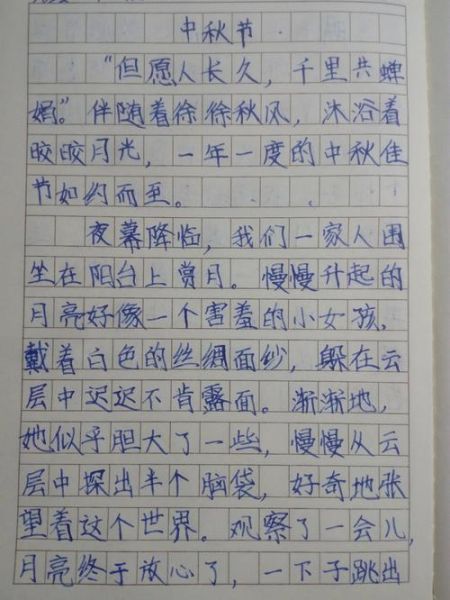 中秋节
“但愿人长久，千里共婵
娟。”伴随着徐徐秋风，沐浴着
皎皎月光，一年一度的中秋佳
节如约而至。
夜幕降临，我们一家人围
坐在阳台上赏月。慢慢升起的
月亮好像一个害羞的小女孩，
戴着白色的丝绸面纱，躲在云
层中迟迟不肯露面。渐渐地，
她似乎胆大了一些，慢慢从云
层中探出半个脑袋，好奇地张
望着这个世界。观察了一会儿，
月亮终于放心了，一下子跳出